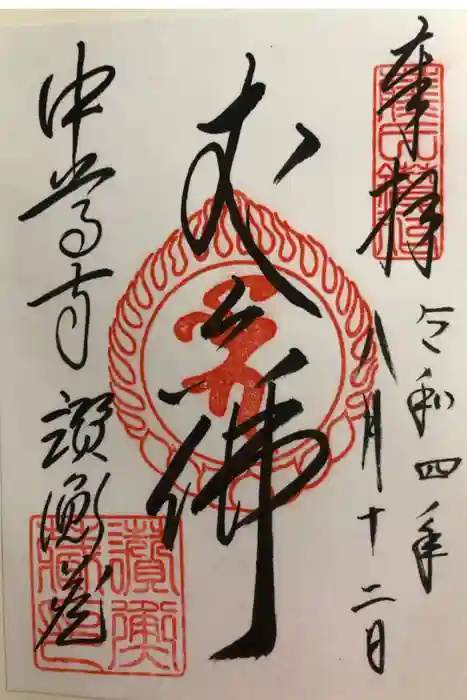 奉拝
令和四年
八月十二日
丈六佛
中尊寺 讃衡蔵
讃衡
蔵印